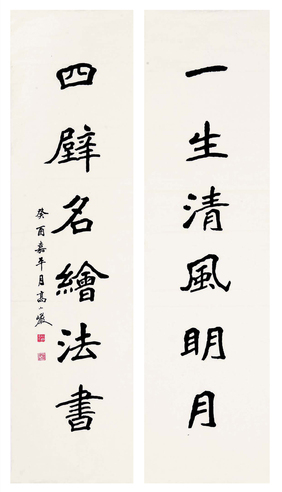 一生清風明月
四壁名繪法書
癸酉嘉平月高